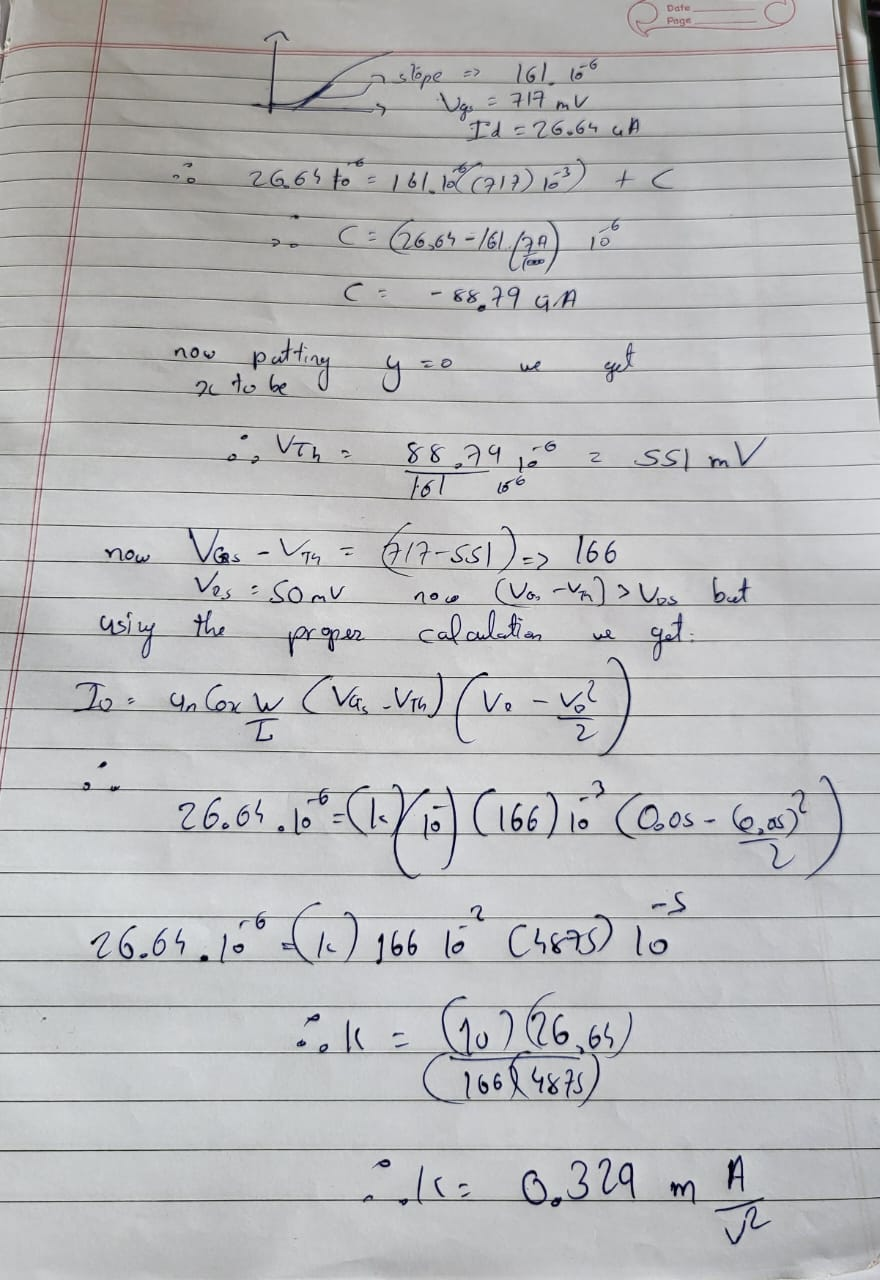 Date
Page
slope => 161. 10^-6
Vgs = 717 mV
Id = 26.64 uA
∴ 26.64 10^-6 = 161.10^-6((717) 10^-3) + C
∴ C = (26.64 - 161.(717/1000)) 10^-6
C = - 88.79 uA
now putting y = 0 we get
x to be
∴ VTh = 88.79 10^-6 / 161 10^-6 = 551 mV
now VGS - VTh = (717-551) => 166
VDS = 50mV now (VGS - VTh) > VDS but
using the proper calculation we get:
ID = un Cox W/L (VGS - VTh) (VD - VD^2/2)
∴
26.64.10^-6 = (k)(10) (166) 10^-3 (0.05 - (0.05)^2/2)
26.64.10^-6 = (k) 166 10^-2 (4875) 10^-5
∴ k = (10)(26.64) / (166)(4875)
∴ k = 0.329 m A/V^2